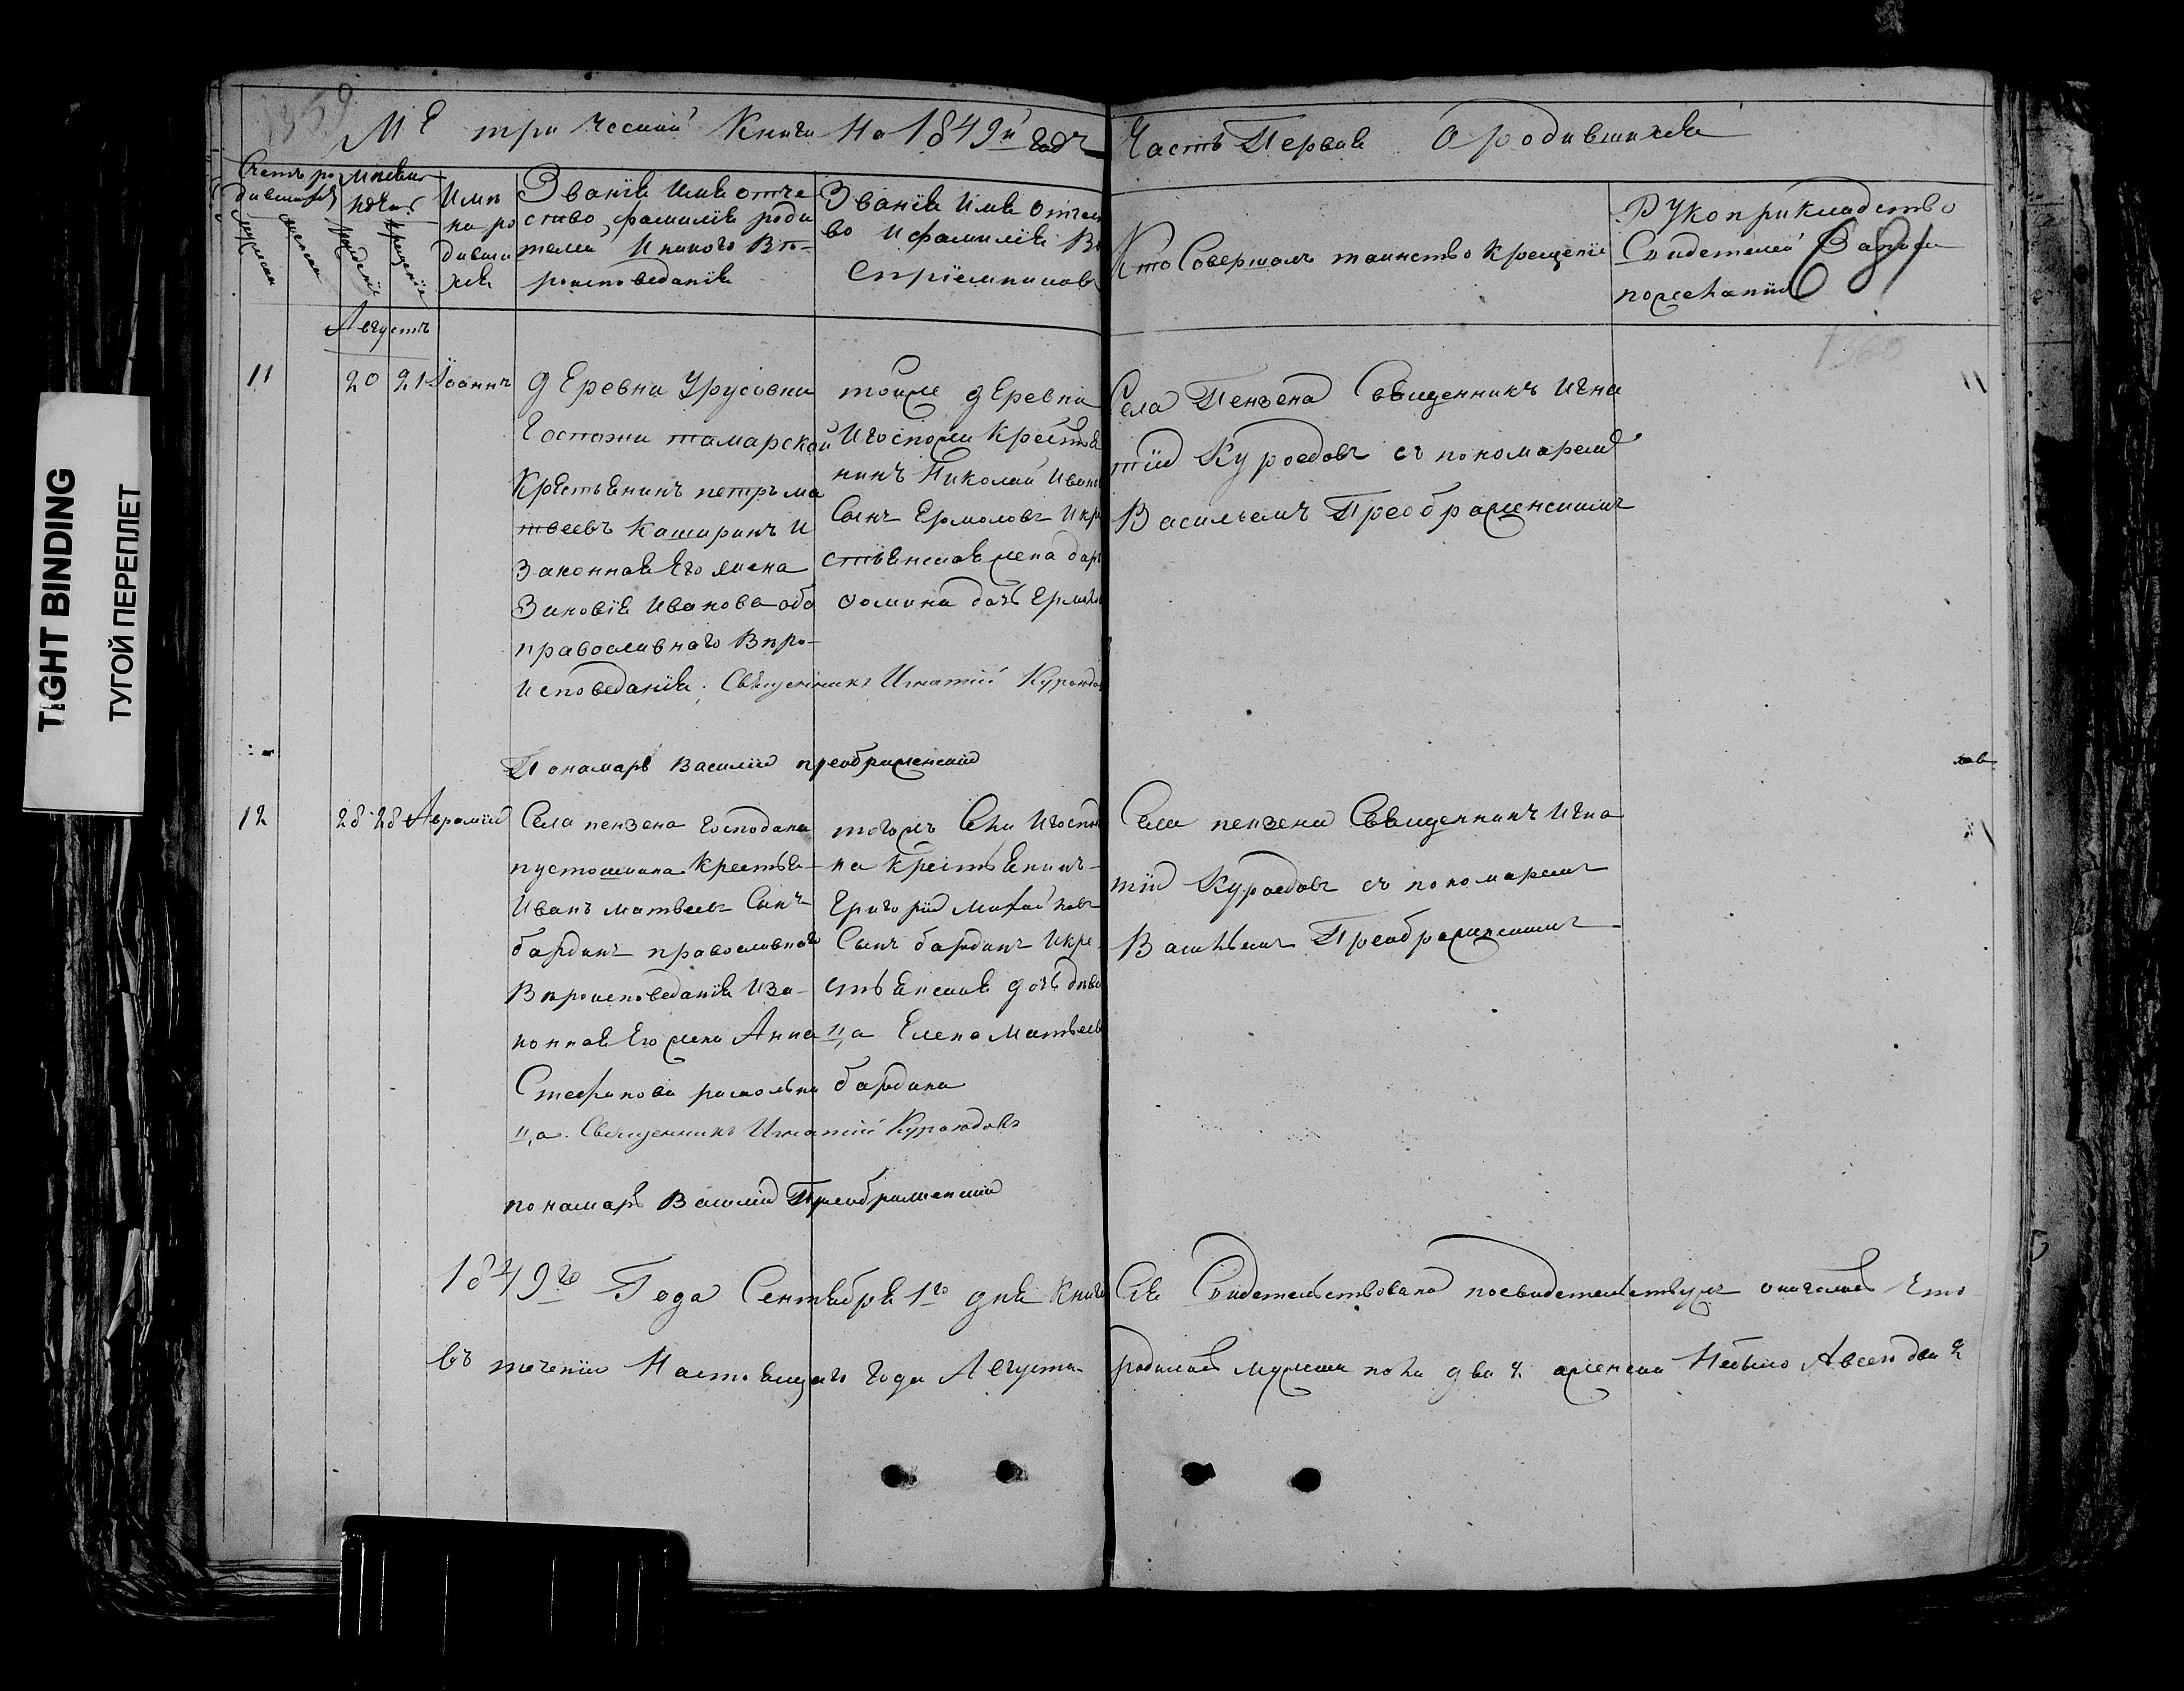 1359
Метрической Книги На 1849й годъ
Часть Первая О родившихся
Счетъ ро
дившихся
мужеска
женска
Месяцъ
рожденія
крещенія
Имя
на ро
дивши
хся
Званія Имя отче
ство, фамилія роди
телей И какого Въ
роисповеданія
Званія Имя Отчес
во И фамилія Во
спріемниковъ
Кто Совершалъ таинство Крещенія
Рукоприкладство
Свидетелей Записи
пожеланію
681
1360
Августъ
11 20 21 Іоаннъ
деревни Урусовки
Госпожи татарской
Крестьянинъ петръ ма
твеевъ Каширинъ И
Законная Его жена
Зиновія Иванова оба
православнаго Вѣро-
исповеданія. Священникъ Игнатій Куроѣдов
тойже деревни
И госпожи Крестья
нинъ Николай Ивано
Сынъ Ермоловъ И кре
стьянская жена дар
Фомина дочь Ермоло
Села Пензена Священникъ Игна
тій Куроедовъ съ пономаремъ
Васильемъ Преображенскимъ
Пономарь Василій преображенскій
12 28 28 Аврамій
Села пензена господина
пустошкина Крестья-
Иванъ матвеевъ Сынъ
бардинъ православнаго
Вѣроисповеданія И за-
конная Его жена Анна
Стефанова раскольни
ца. Священникъ Игнатій Куроѣдовъ
тогожъ Села И господ
на Крестьянинъ
Григорій Михайловъ
Сынъ бардинъ И кре-
стьянская дочь дѣви
ца Елена Матвеев
бардина
Села пензена Священникъ Игна
тій Куроедовъ съ пономаремъ
Васильемъ Преображенскимъ
пономарь Василій Преображенскій
1849го Года Сентября 1го дня Книга Сія Свидетельствована по свидетельству оказалось что
въ теченіи Настоящаго года Августа родилось мужеска пола два 2 а женска Небыло А всего два 2
TIGHT BINDING
ТУГОЙ ПЕРЕПЛЕТ